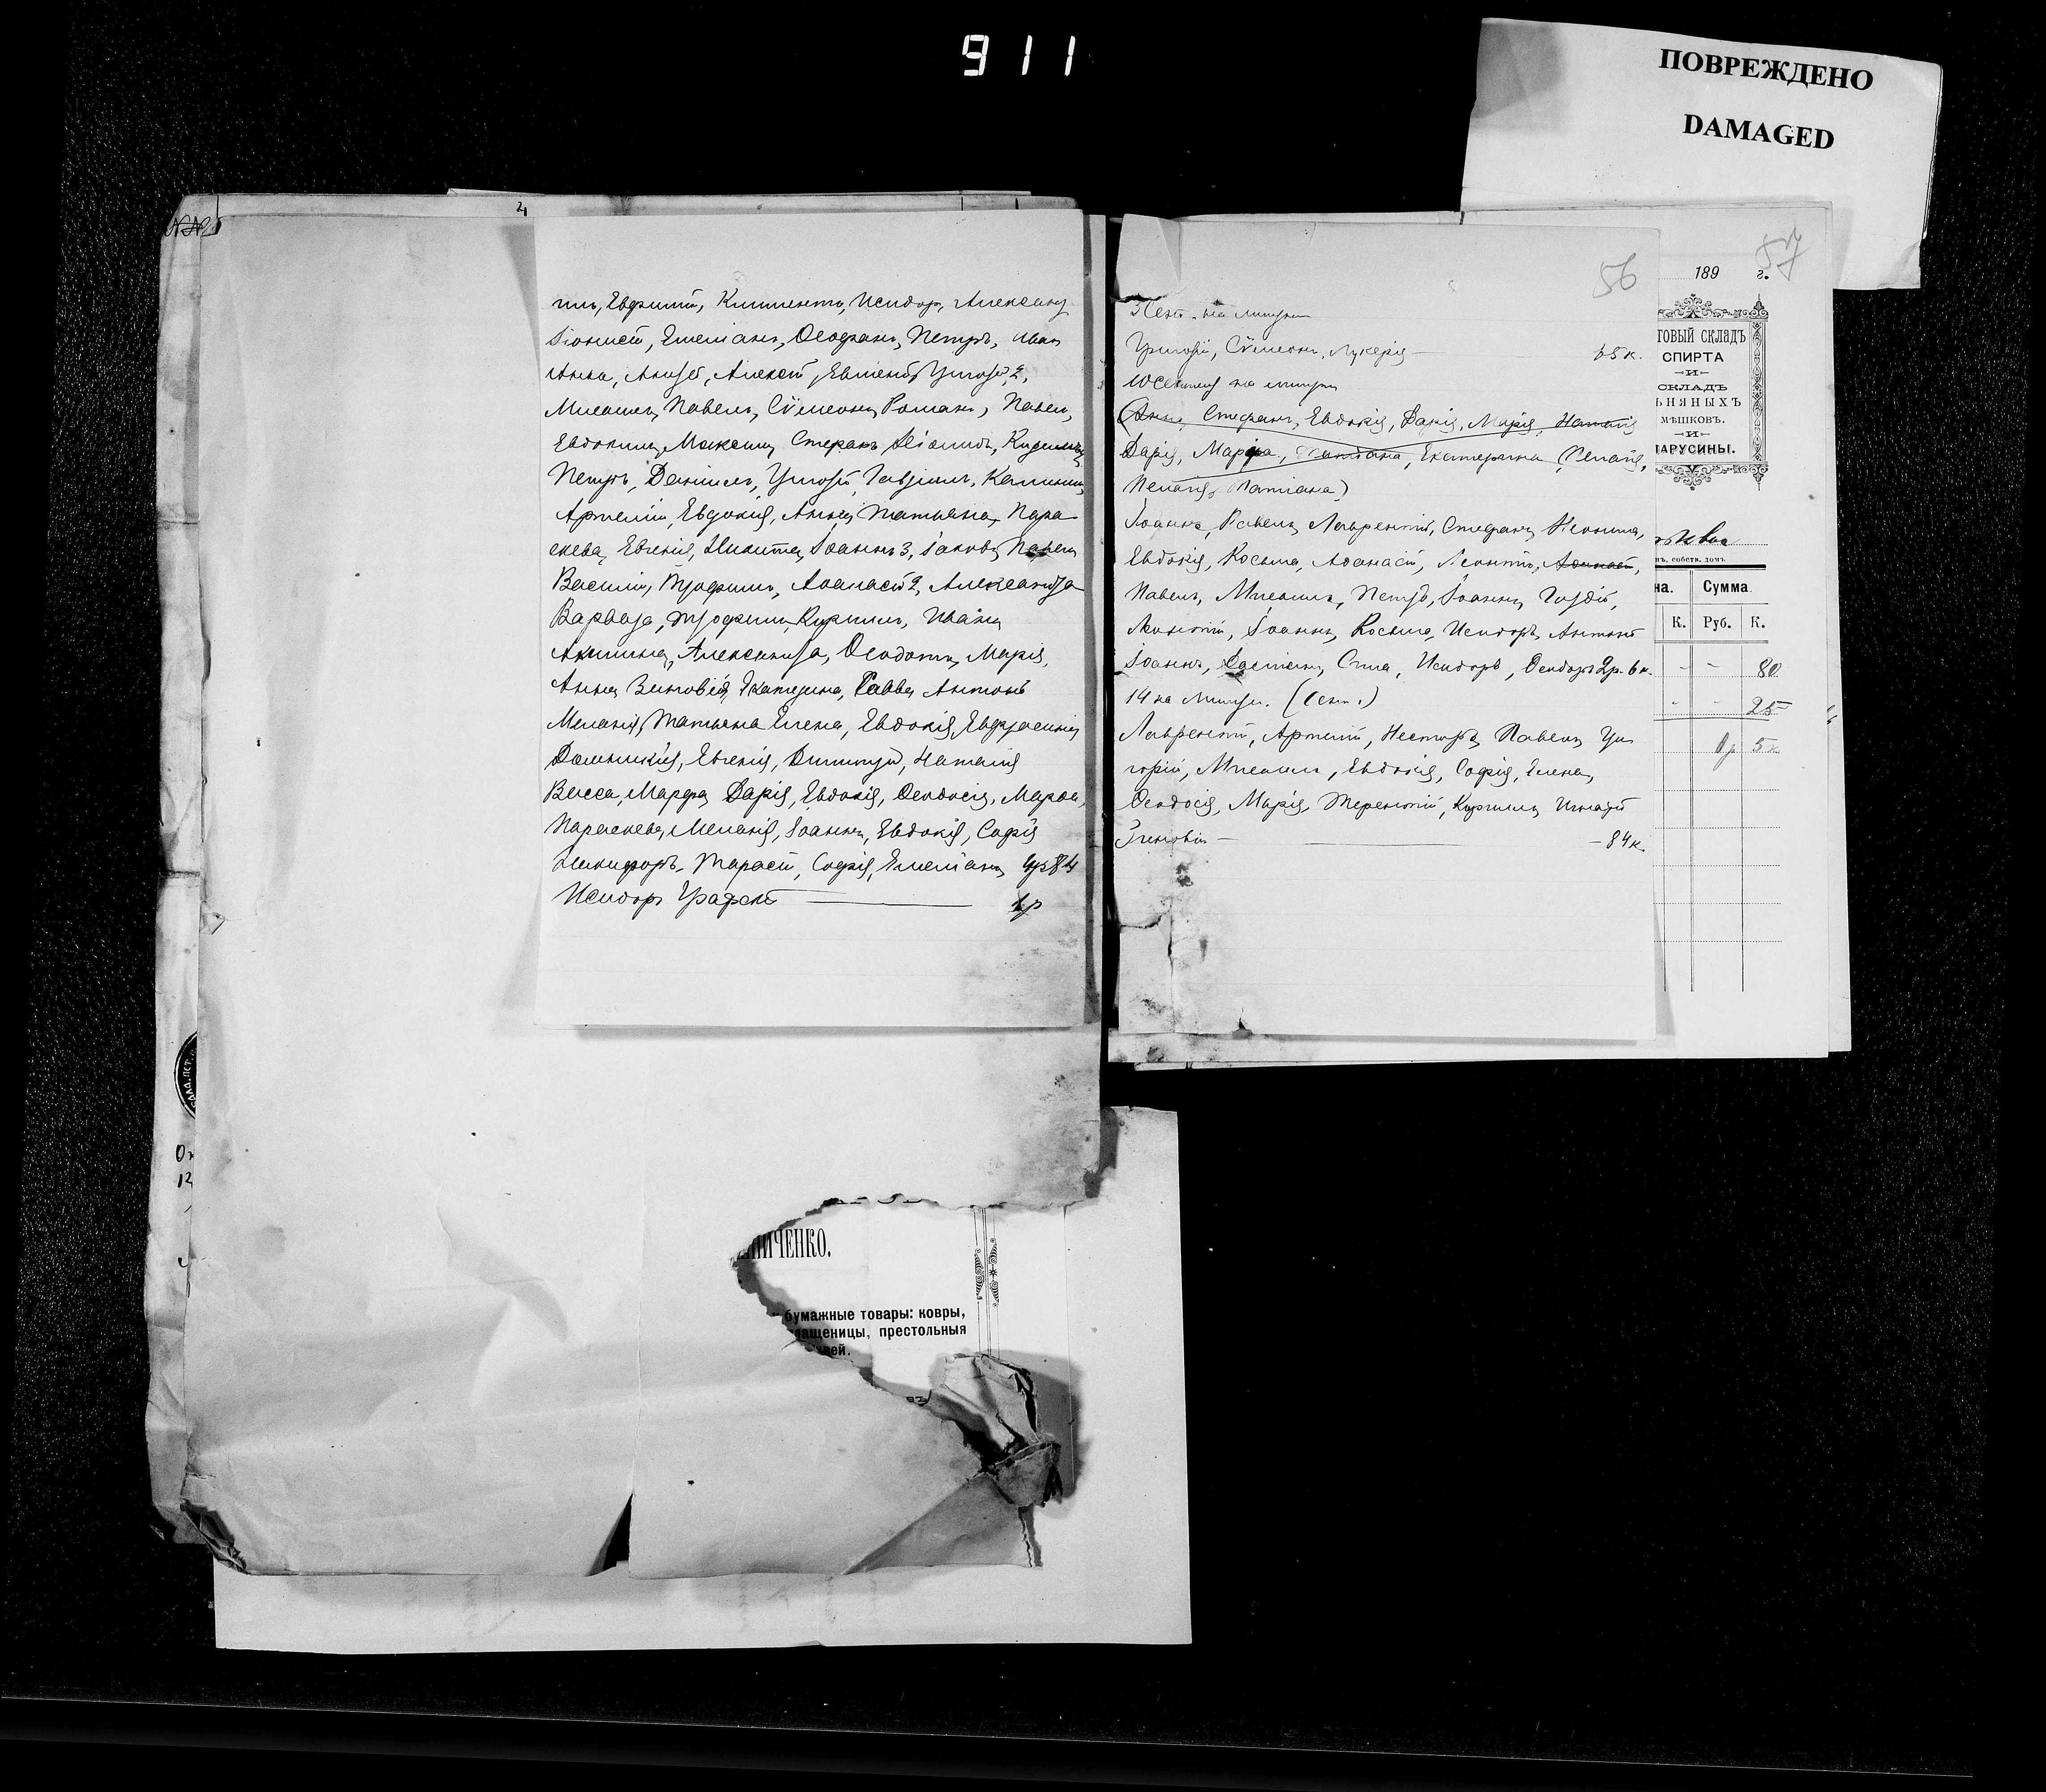 911
ПОВРЕЖДЕНО
DAMAGED
Евфимій, Климентъ, Исидоръ, Александръ
Діонисій, Емеліанъ, Ѳеофанъ, Петръ, Иванъ
Анна, Андрей, Алексѣй, Евгеній, Григорій 2,
Михаилъ, Павелъ, Сѵмеонъ, Романъ, Павелъ,
Евдокимъ, Максимъ, Стефанъ, Леонидъ,
Петръ, Даніилъ, Григорій, Гавріилъ, Калинникъ,
Артемій, Евдокія, Анна, Татьяна, Пара
скева, Евгенія, Никита, Іоаннъ 3, Іаковъ, Павелъ
Василій, Трофимъ, Аѳанасій 2, Александра
Варвара, Трофимъ, Кириллъ, Иванъ
Акилина, Александра, Ѳеодотъ, Марія,
Анна, Зиновія, Екатерина, Савва, Антонъ
Меланія, Татьяна, Елена, Евдокія, Евфросинія
Домникія, Евгенія, Димитрій, Наталія
Васса, Марфа, Дарія, Евдокія, Ѳеодосія, Марѳа,
Параскева, Меланія, Іоаннъ, Евдокія, Софія
Никифоръ, Тарасій, Софія, Емеліанъ 4р 84
Исидоръ 1р
56
57
Сент. на литург
Григорій, Сѵмеонъ, Лукерія — 65 к.
10 Сентяб на литург
(Анна, Стефанъ, Евдокія, Дарія, Марія, Наталія
Дарія, Марфа, Татіана, Екатерина, Пелагія,
Пелагія, Татіана)
Іоаннъ, Павелъ, Лаврентій, Стефанъ, Неонила,
Евдокія, Косьма, Аѳанасій, Леонтій, Аѳанасій,
Павелъ, Михаилъ, Петръ, Іоаннъ, Гордій,
Леонтій, Іоаннъ, Косьма, Исидоръ, Антоній
Іоаннъ, Даміанъ, Сила, Исидоръ, Ѳеодоръ 2р. 6 к.
14 на Литург. (Сент.)
Лаврентій, Артемій, Несторъ, Павелъ, Гри
горій, Михаилъ, Евдокія, Софія, Елена,
Ѳеодосія, Марія, Терентій, Кириллъ, Игнатій
Зиновій — — 84 к.
189 г.
ТОВЫЙ СКЛАДЪ
СПИРТА
И
СКЛАДЪ
ЬНЯНЫХЪ
МѢШКОВЪ.
И
ПАРУСИНЫ.
нъ, собств. домъ.
на. Сумма.
К. Руб. К.
80
25
1р 5к
ИЧЕНКО.
бумажные товары: ковры,
ащеницы, престольныя
вей.